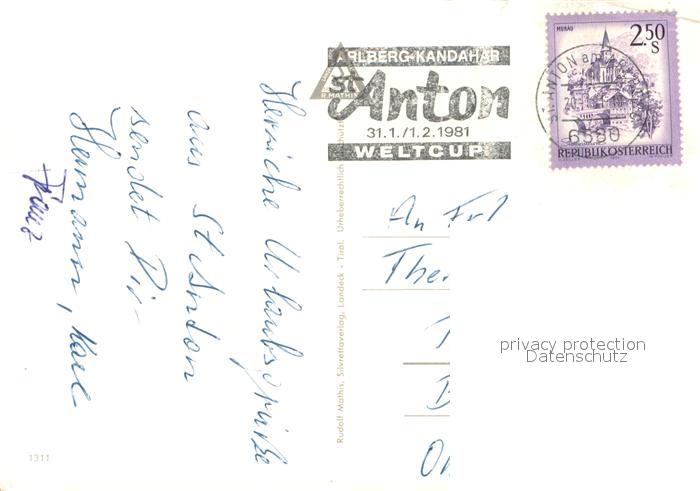 Herzliche Urlaubsgrüße
aus St Anton
sendet Dir
Hermann, Karl
+ Franz
ARLBERG-KANDAHAR
St. Anton
31.1./1.2.1981
WELTCUP
MURAU
2.50
S
REPUBLIK ÖSTERREICH
ST. ANTON am
6580
An Frl
The
privacy protection
Datenschutz
Rudolf Mathis, Silvrettaverlag, Landeck - Tirol. Urheberrechtlich
1311